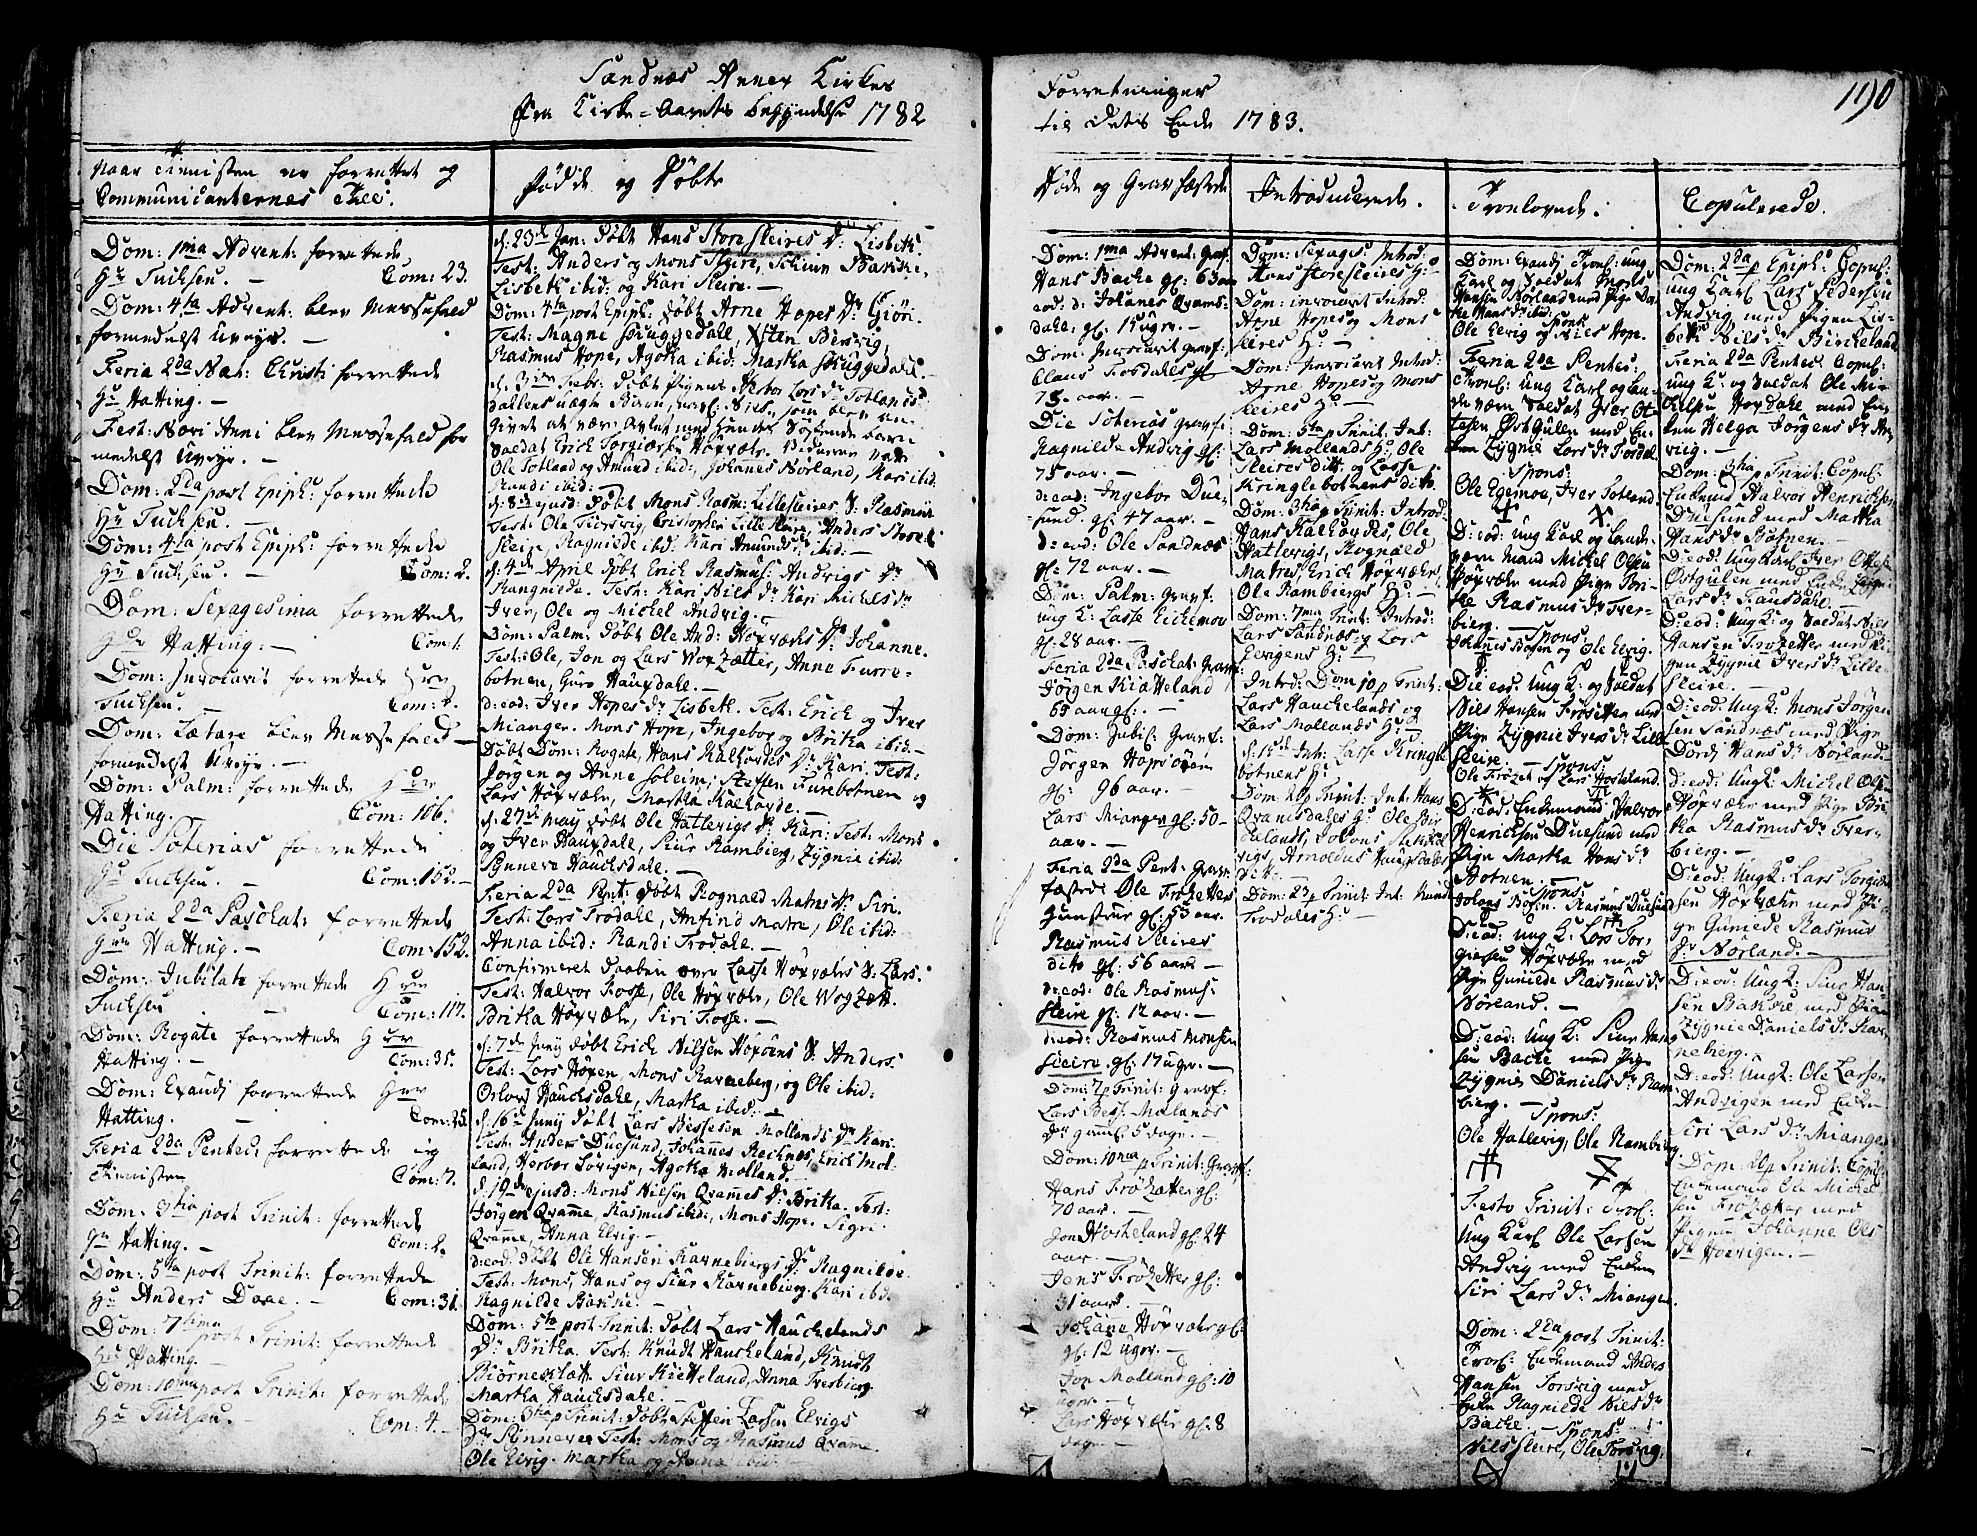 Sandnæs Annex Kirkes
fra Kirke-Aarets begyndelse 1782
Naar Tienisten er forrettet og
Communicanternes Tall:
Dom: 1ma Advent: forrettede
Hr Tuchsen. Com: 23.
Dom: 4ta Advent: blev Messefald
formedelst Uveyr. –
Feria 2da Nat: Christi forrettede
Hr Hatting. –
Fest: Novi Anni blev Messefald for
medelst Uveyr. –
Dom: 2da post Epiph: forrettede
Hr Tuchsen. –
Dom: 4ta post Epiph: forrettede
Hr Tuchsen. – Com: 2.
Dom: Sexagesima forrettede
Hr Hatting. – Com: 1.
Dom: Invocavit forrettede Hr
Tuchsen. – Com: 2.
Dom: Lætare blev Messefald
formedelst Uveyr. –
Dom: Palm: forrettede Hr
Hatting. Com: 106.
Die Soterias forrettede
Hr Tuchsen. – Com: 152. –
Feria 2da Paschat: forrettede
Hr Hatting. – Com: 152.
Dom: Jubilate forrettede Hr
Tuchsen – Com: 117.
Dom: Rogate forrettede Hr
Hatting. – Com: 35.
Dom: Exaudj forrettede Hr
Hatting. – Com: 25.
Feria 2da Pentec: forrettede ieg
Tienisten Com: 7.
Dom: 3tia post Trinit: forrettede
Hr Hatting. – Com: 2.
Dom: 5ta post Trinit: forrettede
Hr Anders Daae. – Com: 31.
Dom: 7tima post Trinit: forrettede
Hr Hatting. –
Dom: 10ma post Trinit: forrettede
Hr Tuchsen. – Com: 4. –
Fødde og Døbte
d: 23de Jan: døbt Hans Storesleires Dr: Lisbeth.
Test: Anders og Mons Sleire,
Lisbeth ibid: og Kari Sleire. –
Dom: 4ta post Epiph: døbt Arne Hopes Dr Giöri.
Test: Magne Skuggedall,
Rasmus Hope, Agotha ibid: Martha Skuggedall. –
Saldat Erick Torgiersen Höyvæhr.
Ole Totland og Amund ibid:, Johannes Nörland, Kari ibid:
Randi ibid: –
d: 8de ejusd: døbt Mons Rasm: Lillesleires S. Rasmus
Sleire, Ragnilde ibid: Kari Amunds Dr ibid: –
d: 4de April døbt Erich Rasmus: Andvigs Dr
Rangnilde. Test: Kari Nils Dr Kari Michels Dr
Iver, Ole og Michel Andvig. –
Dom: Palm: døbt Ole And: Höyvæhrs Dr Johanne.
Test: Ole, Jon og Lars Woxzætter, Anne Furre-
botnen, Guro Hauxdale. –
d: eod: Iver Hopes Dr Lisbeth. Test: Erich og Iver
Mianger. Mons Hope, Ingebor og Britha ibid. –
Døbt Dom: Rogate, Hans Kalhovdes Dr Kari. Test:
Jörgen og Anne Soleim, Steffen Furebotnen og
Lars Höyvæhr, Martha Kalhovde. –
d: 27de Maij døbt Ole Hatlevigs Dr Kari: Test: Mons
og Iver Hauxdale, Siur Ramberg, Zygnie ibid:
Synneve Hauchsdale. –
Feria 2da Pent: døbt Rognald Matres Dr Siri.
Test: Lars Trodale, Anfind Matre, Ole ibid:
Anna ibid: Randi Trodale. –
Confirmeret Daaben over Lasse Höyvæhrs S: Lars.
Test: Halvor Fosse, Ole Höyvæhr, Ole Woxzett.
Britha Höyvæhr, Siri Fosse. –
d: 7de Junij døbt Erich Nilsen Hopsöens S. Anders.
Test: Lars Höyen, Mons Ravneberg, og Ole ibid:
Hauchsdale, Martha ibid: –
d: 16de Junij døbt Lars Bessesen Mollands Dr Kari.
Test: Anders Duesund, Johannes Rechnes, Erich Mol-
land, Agotha Molland. –
d: 19de ejusd: Mons Nilsen Qvammes Dr Britha. Test:
Jörgen Qvamme, Rasmus ibid:, Mons Hope. Sigri
Qvamme, Anna Elvig. –
d: eod: døbt Ole Hansen Ravnebergs Dr Ragnilde.
Test: Mons, Hans og Siur Ravneberg. Kari ibid:
Ragnilde Bakke. –
Dom: 5ta post Trinit: døbt Lars Hauchelands
Dr Britha. Test: Knudt Haucheland, Knudt
Biörneslætt. Siur Kietteland, Anna Tverberg.
Martha Hauchsdale. –
Dom: 3tia p Trinit: døbt Steffen Larsen Elvigs
Dr Synneve. Test: Mons og Rasmus Qvamme.
Ole Elvig. Martha og Anna ibid:
Forretninger
til Dets Ende 1783.
190
Døde og Gravfæstede
Dom: 1ma Advent: Graf:
Hans Bache gl: 63 aar
eod: d: Johanes Qvams-
dale, gl: 15 uger. –
Dom: Invocavit Gravf:
Claus Trosdales
75. aar. –
Die Soterias gravf:
Ragnilde Andvig gl:
75 aar. –
d: eod: Ingebor Due-
sund. gl: 47 aar. –
d: eod: Ole Sandnæs
gl: 72 aar. –
Dom: Palm: gravf:
ung K: Lasse Eichemoe
gl: 28 aar. –
Feria 2da Paschat: Gravf:
Jörgen Kiatteland
65 aar gl: –
Dom: Jubil: Gravf:
Jörgen Hopsöen
gl: 96 aar. –
Lars Mianger gl: 50 –
aar. –
Feria 2da Pent: Grav-
fæstet Ole Frözetters
gl: 53 aar.
Rasmus Sleires
dito gl: 56 aar. –
d: eod: Ole Rasmus:
Sleire gl: 12 aar. –
d: eod: Rasmus Monsen
Sleire. gl: 17 uger. –
Dom: 7 p Trinit: Gravf:
Lars Bess: Molands
Dr gaml: 5 dage. –
Dom: 10ma p Trinit: Gravf:
Hans Frözætter gl:
70 aar. –
Jon Hosteland gl: 24
aar. –
Jens Frözetter gl:
31 aar. –
Johane Höyvæhr gl:
gl: 12 uger. –
Jon Molland gl: 10
uger. –
Lars Höyvæhr gl: 8
dage. –
Introducerede.
Dom: Sexages: Introd:
Hans Storesleires H: –
Dom: invocavit Introd:
Arne Hopes og Mons
Sleires H: –
Dom: Invocavit Introd:
Arne Hopes og Mons
Sleires H: –
Dom: 5ta p Trinit: Int:
Lars Mollands H:, Ole
Sleires dito og Lasse
Kringlebotnens dito.
Dom: 3tia p Trinit: Introd:
Hans Kalhovdes, Ole
Hatlevigs, Rognald
Matres, Erich Höyvæhrs,
Ole Rambergs H: –
Dom: 7ma Trint: Introd:
Lars Sandnæs og Lars
Elvigens H: –
Introd: Dom 10 p Trinit:
Lars Hauchelands og
Lars Mollands H: –
d: 15de Int: Lasse Kringle
botnens H:
Dom: 20 p Trinit: Int: Hans
Qvamsdales H: Ole Bir
kelands,
vigs, Arnoldus Hauxdales
dito. –
Dom: 23 p Trinit: Int: Knud
Trodales H: –
Trolovede.
Dom: Exaudj Trol: ung
Karl og Saldat Mons
Hansen Nörland med Pige
Ole Elvig og Niels Hope.
Feria 2da Pentec:
Trol: ung Karl og lan-
deværn Saldat Iver Ot-
tesen Østgulen med En-
ken Zygnie Lars Dr Tosdal.
Spons:
Ole Egemoe, Iver Totland.
D: eod: ung Karl og Lande-
vern Mand Michel Olsen
Höyvæhr med Pige Bri-
the Rasmus Dr Tver-
bierg. – Spons.
Johannes Bösen og Ole Elvig.
Die eod. Ung K: og Saldat
Nils Hansen Frösetter med
Pige Zygnie Ivers Dr Lille
Sleire. – Spons:
Ole Frözet og Lars Hosteland.
D: eod: Enkemand Halvor
Henrichsen Duesund med
Pige Martha Hans Dr
Botnen. – Spons:
Johans Bösen. Rasmus Duesund
D: eod: Ung K: Lars Tor-
giersen Höyvæhr med
Pige Gunilde Rasmus Dr
Nörland. –
D: eod: Ung K: Siur Hans-
sen Bache med Pige
Zygnie Daniels Dr Ram
bierg. – Spons:
Ole Hatlevig, Ole Ramberg
Festo Trinit: Trol:
Ung Karl Ole Larsen
Andvig med Enken
Siri Lars Dr Mianger.
Dom: 2da post Trinit:
Trol: Enkemand Andes
Hansen Torsvig med
Enke Ragnilde Nils Dr
Bache. – Spons:
Nils Sleire, Ole Torsvig.
Copulerede.
Dom: 2da p Epiph: Copul:
ung Karl Lars Pedersen
Andvig med Pigen Lis-
beth Nils Dr Bircheland
Feria 2da Pentec: Copul:
ung K: og Saldat Ole Mi-
chelsen Höxdahl med En-
ken Helga Jörgens Dr An-
vig. –
Dom: 3tia p Trinit: Copul:
Enkemd Halvor Henrichsen
Duesund med Martha
Hans Dr Botnen. –
D: eod: Ung Karl Iver Ottesen
Østgulen med Enke Zygni
Lars Dr Tausdahl. –
D: eod: Ung K: og Saldat Nils
Hansen Frozetter med Pi-
gen Zygnie Ivers Dr Lille-
Sleire. –
D: eod: Ung K: Mons Jörgen
sen Sandnæs med Pige
Dordj Hans Dr Nörland. –
d: eod: Ung K: Michel Olsen
Höyvæhr med Pige Bri-
tha Rasmus Dr Tver-
bierg. –
D: eod: Ung K: Lars Torgier-
sen Höyvæhr med Pi-
ge Gunilde Rasmus
Dr Nörland. –
D: eod: Ung K: Siur Han-
sen Bakke, med Pigen
Zygnie Daniels Dr Rav-
neberg.
D: eod: Ung K: Ole Larsen
Andvigen med Enken
Siri Lars Dr Mianger
Dom: 20 p Trinit: Copul:
Enkemand Ole Michel
sen Frözetter med
Pigen Johanne Ols
Dr Hoevigen. –